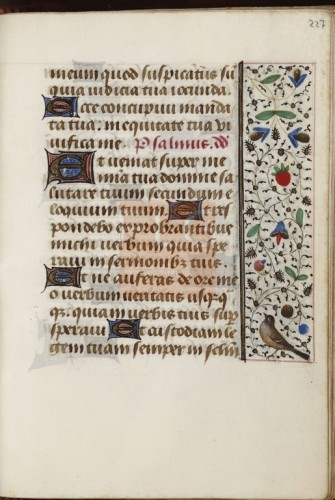 227
meum quod suspicatus su
quia iudicia tua iocunda.
Ecce concupiui manda
ta tua: in equitate tua vi
uifica me. Psalmus. dd
Et ueniat super me
mia tua domine sa
lutare tuum secundum e
loquium tuum. Et res
pondebo exprobrantibus
michi uerbum quia spe
raui in sermonibus tuis.
Et ne auferas de ore me
o uerbum ueritatis usq3 q
q3. quia in uerbis tuis sup
speraui Et custodiam le
gem tuam semper in seculu